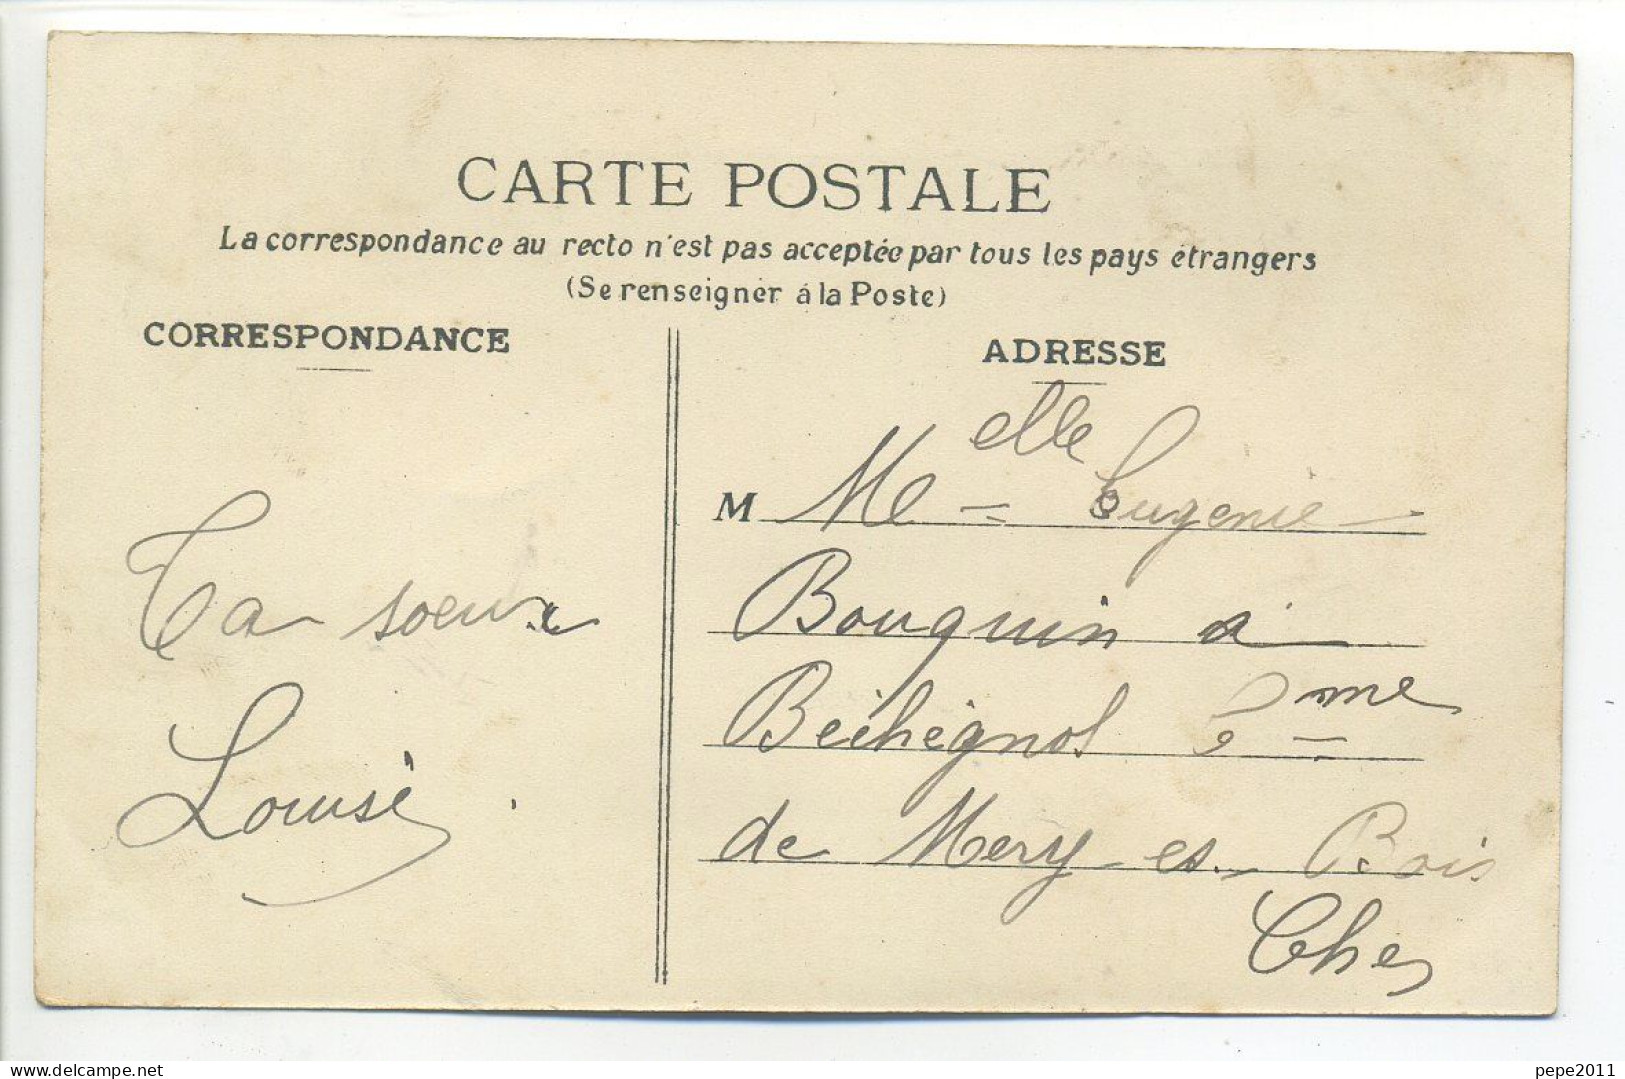 CARTE POSTALE
La correspondance au recto n'est pas acceptée par tous les pays étrangers
(Se renseigner à la Poste)
CORRESPONDANCE
Ta soeur
Louise
ADRESSE
M Melle Eugenie
Bouquin à
Bechégnol Cme
de Mery-es-Bois
Cher
www.delcampe.net
pepe2011